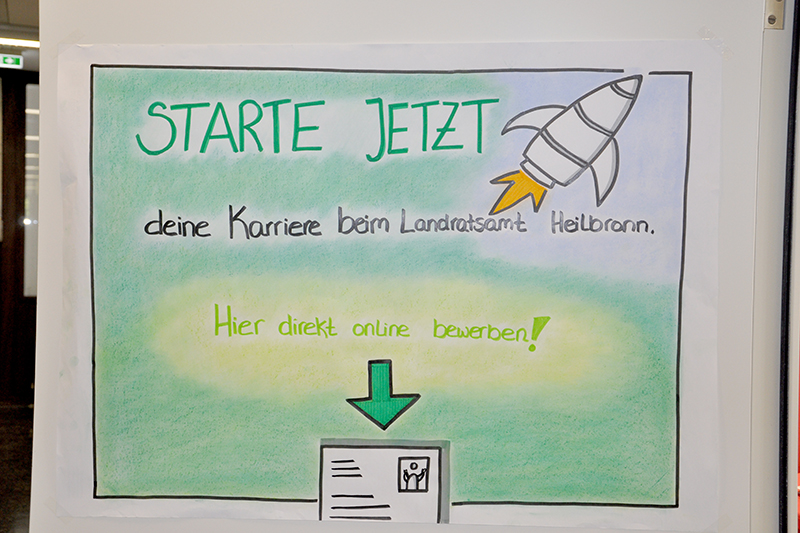 STARTE JETZT
deine Karriere beim Landratsamt Heilbronn.
Hier direkt online bewerben!